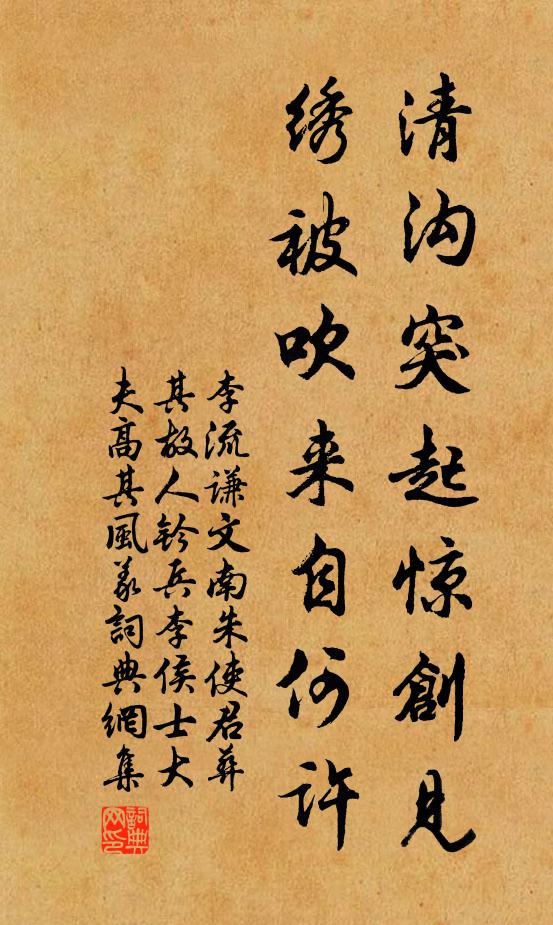 清沟突起惊創見
绣被吹来自何许
李流谦文南朱使君葬
其故人钤兵李侯士大
夫高其風义詞典網集
詞典网印